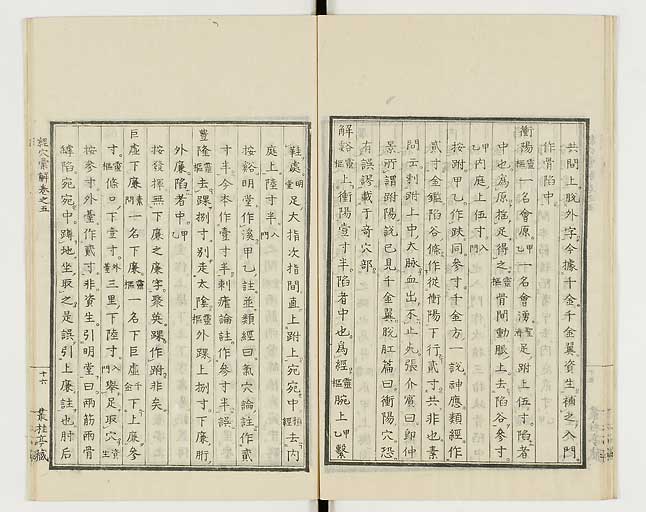 共間上脫外字今據千金千金翼資生補之入門
作骨陷中
衝陽靈樞一名會原甲乙一名會湧聖濟足跗上伍寸陷者
中也爲原搖足得之靈樞骨間動脈上去陷谷參寸
甲乙內庭上伍寸入門
按跗甲乙作趺同參寸千金方一說神應類經作
貳寸金鑑陷谷條作從衝陽下行貳寸共非也素
問云刺跗上中大脉血出不止死張介賓曰卽仲
景所謂趺陽說已見千金翼脫肛篇曰衝陽穴恐
有誤謬載于奇穴部
解谿靈樞上衝陽壹寸半陷者中也爲經靈樞腕上甲乙繫
鞋處明堂足大指次指間直上跗上宛宛中去內
庭上陸寸半入門
按谿明堂作溪甲乙註並類經曰氣穴論註作貳
寸半今本作壹寸半刺瘧論註作參寸半誤
豐隆靈樞去踝捌寸別走太陰靈樞外踝上捌寸下廉胻
外廉陷者中甲乙
按發揮無下廉之廉字聚英踝作跗非矣
巨虛下廉素問一名下廉靈樞一名下巨虛千金下上廉參
寸靈樞條口下壹寸外臺三里下陸寸入門舉足取穴資生
按參寸外臺作貳寸非資生引明堂曰兩筋兩骨
罅陷宛宛中蹲地坐取之是誤引上廉註也肘后
經穴彙解卷之五
十六
叢桂亭藏